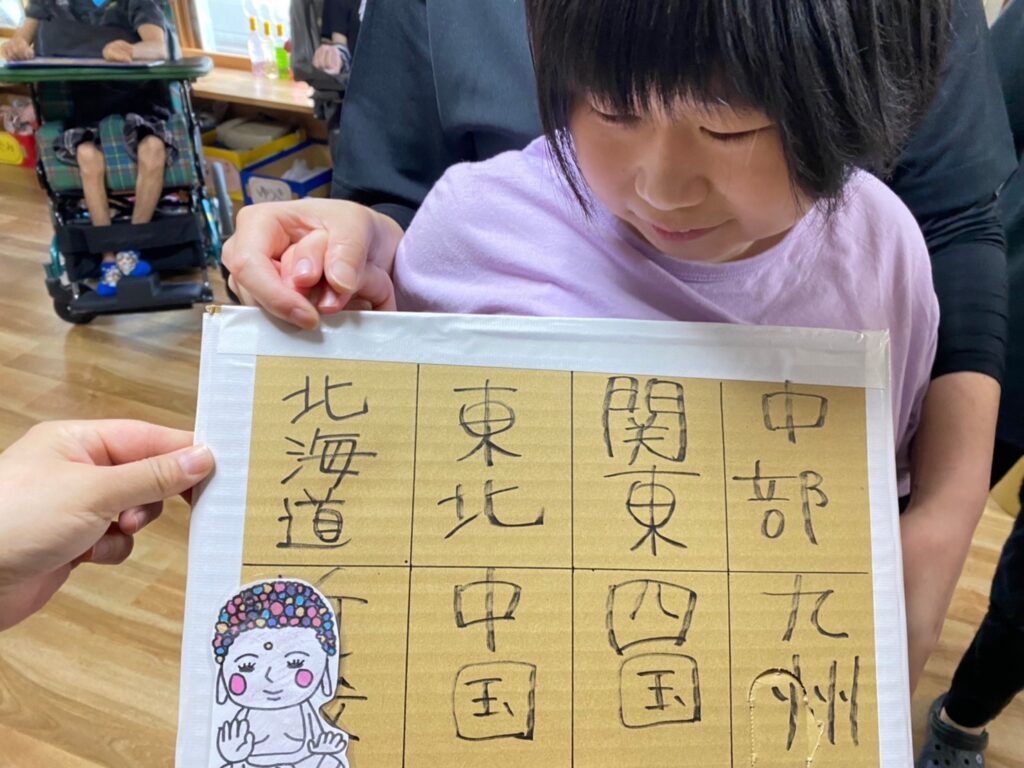 北海道
東北
関東
中部
中国
四国
九州